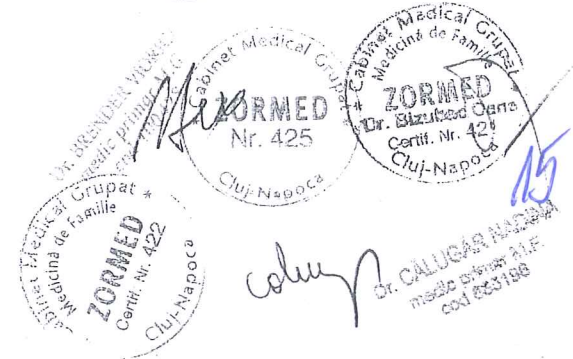 Dr. BRENDER
medic primar M.F.
Cabinet Medical Grupat
ZORMED
Nr. 425
Cluj-Napoca
* Cabinet Medical Grupat *
Medicină de Familie
ZORMED
Dr. Bizubad Oana
Certif. Nr. 421
Cluj-Napoca
15
Cabinet Medical Grupat *
Medicină de Familie
ZORMED
Certif. Nr. 422
Cluj-Napoca
Dr. CALUGAR NADINA
medic primar M.F.
cod